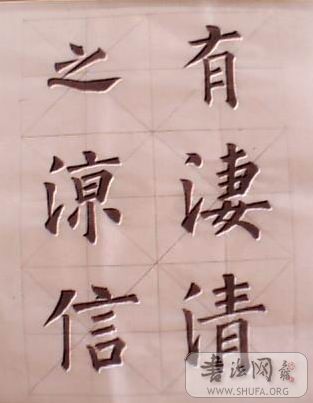 有淒清
之涼信
书法网
WWW.SHUFA.ORG